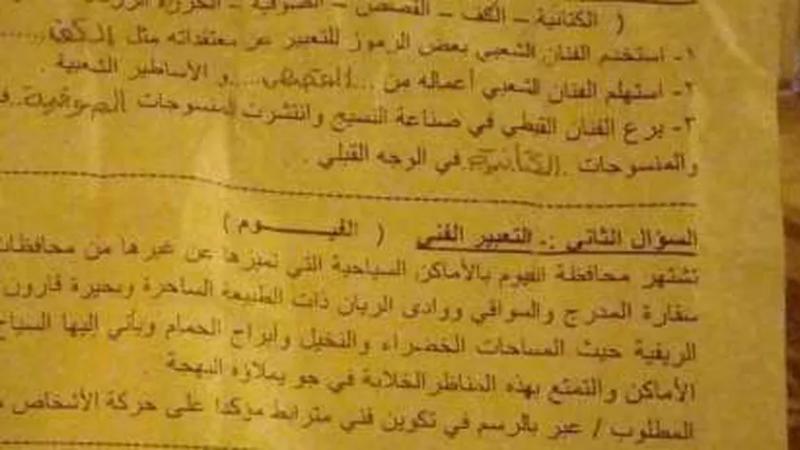 ( الكتانية - الكف - القصص - الصوفية -
١- استخدم الفنان الشعبي بعض الرموز للتعبير عن معتقداته مثل الكف......
٢- استلهم الفنان الشعبي أعماله من ...القصص.... و الأساطير الشعبية .
٣- برع الفنان القبطي في صناعة النسيج وانتشرت المنسوجات الصوفية..
والمنسوجات .الكتانية. في الوجه القبلي .
السؤال الثاني :- التعبير الفني ( الفيـــوم )
تشتهر محافظة الفيوم بالأماكن السياحية التي تميزها عن غيرها من محافظات
سقارة المدرج والسواقي ووادى الريان ذات الطبيعة الساحرة وبحيرة قارون
الريفية حيث المساحات الخضراء والنخيل وأبراج الحمام ويأتي إليها السياح
الأماكن والتمتع بهذه المناظر الخلابة في جو يملاؤه البهجة .
المطلوب / عبر بالرسم في تكوين فني مترابط مؤكدا على حركة الأشخاص